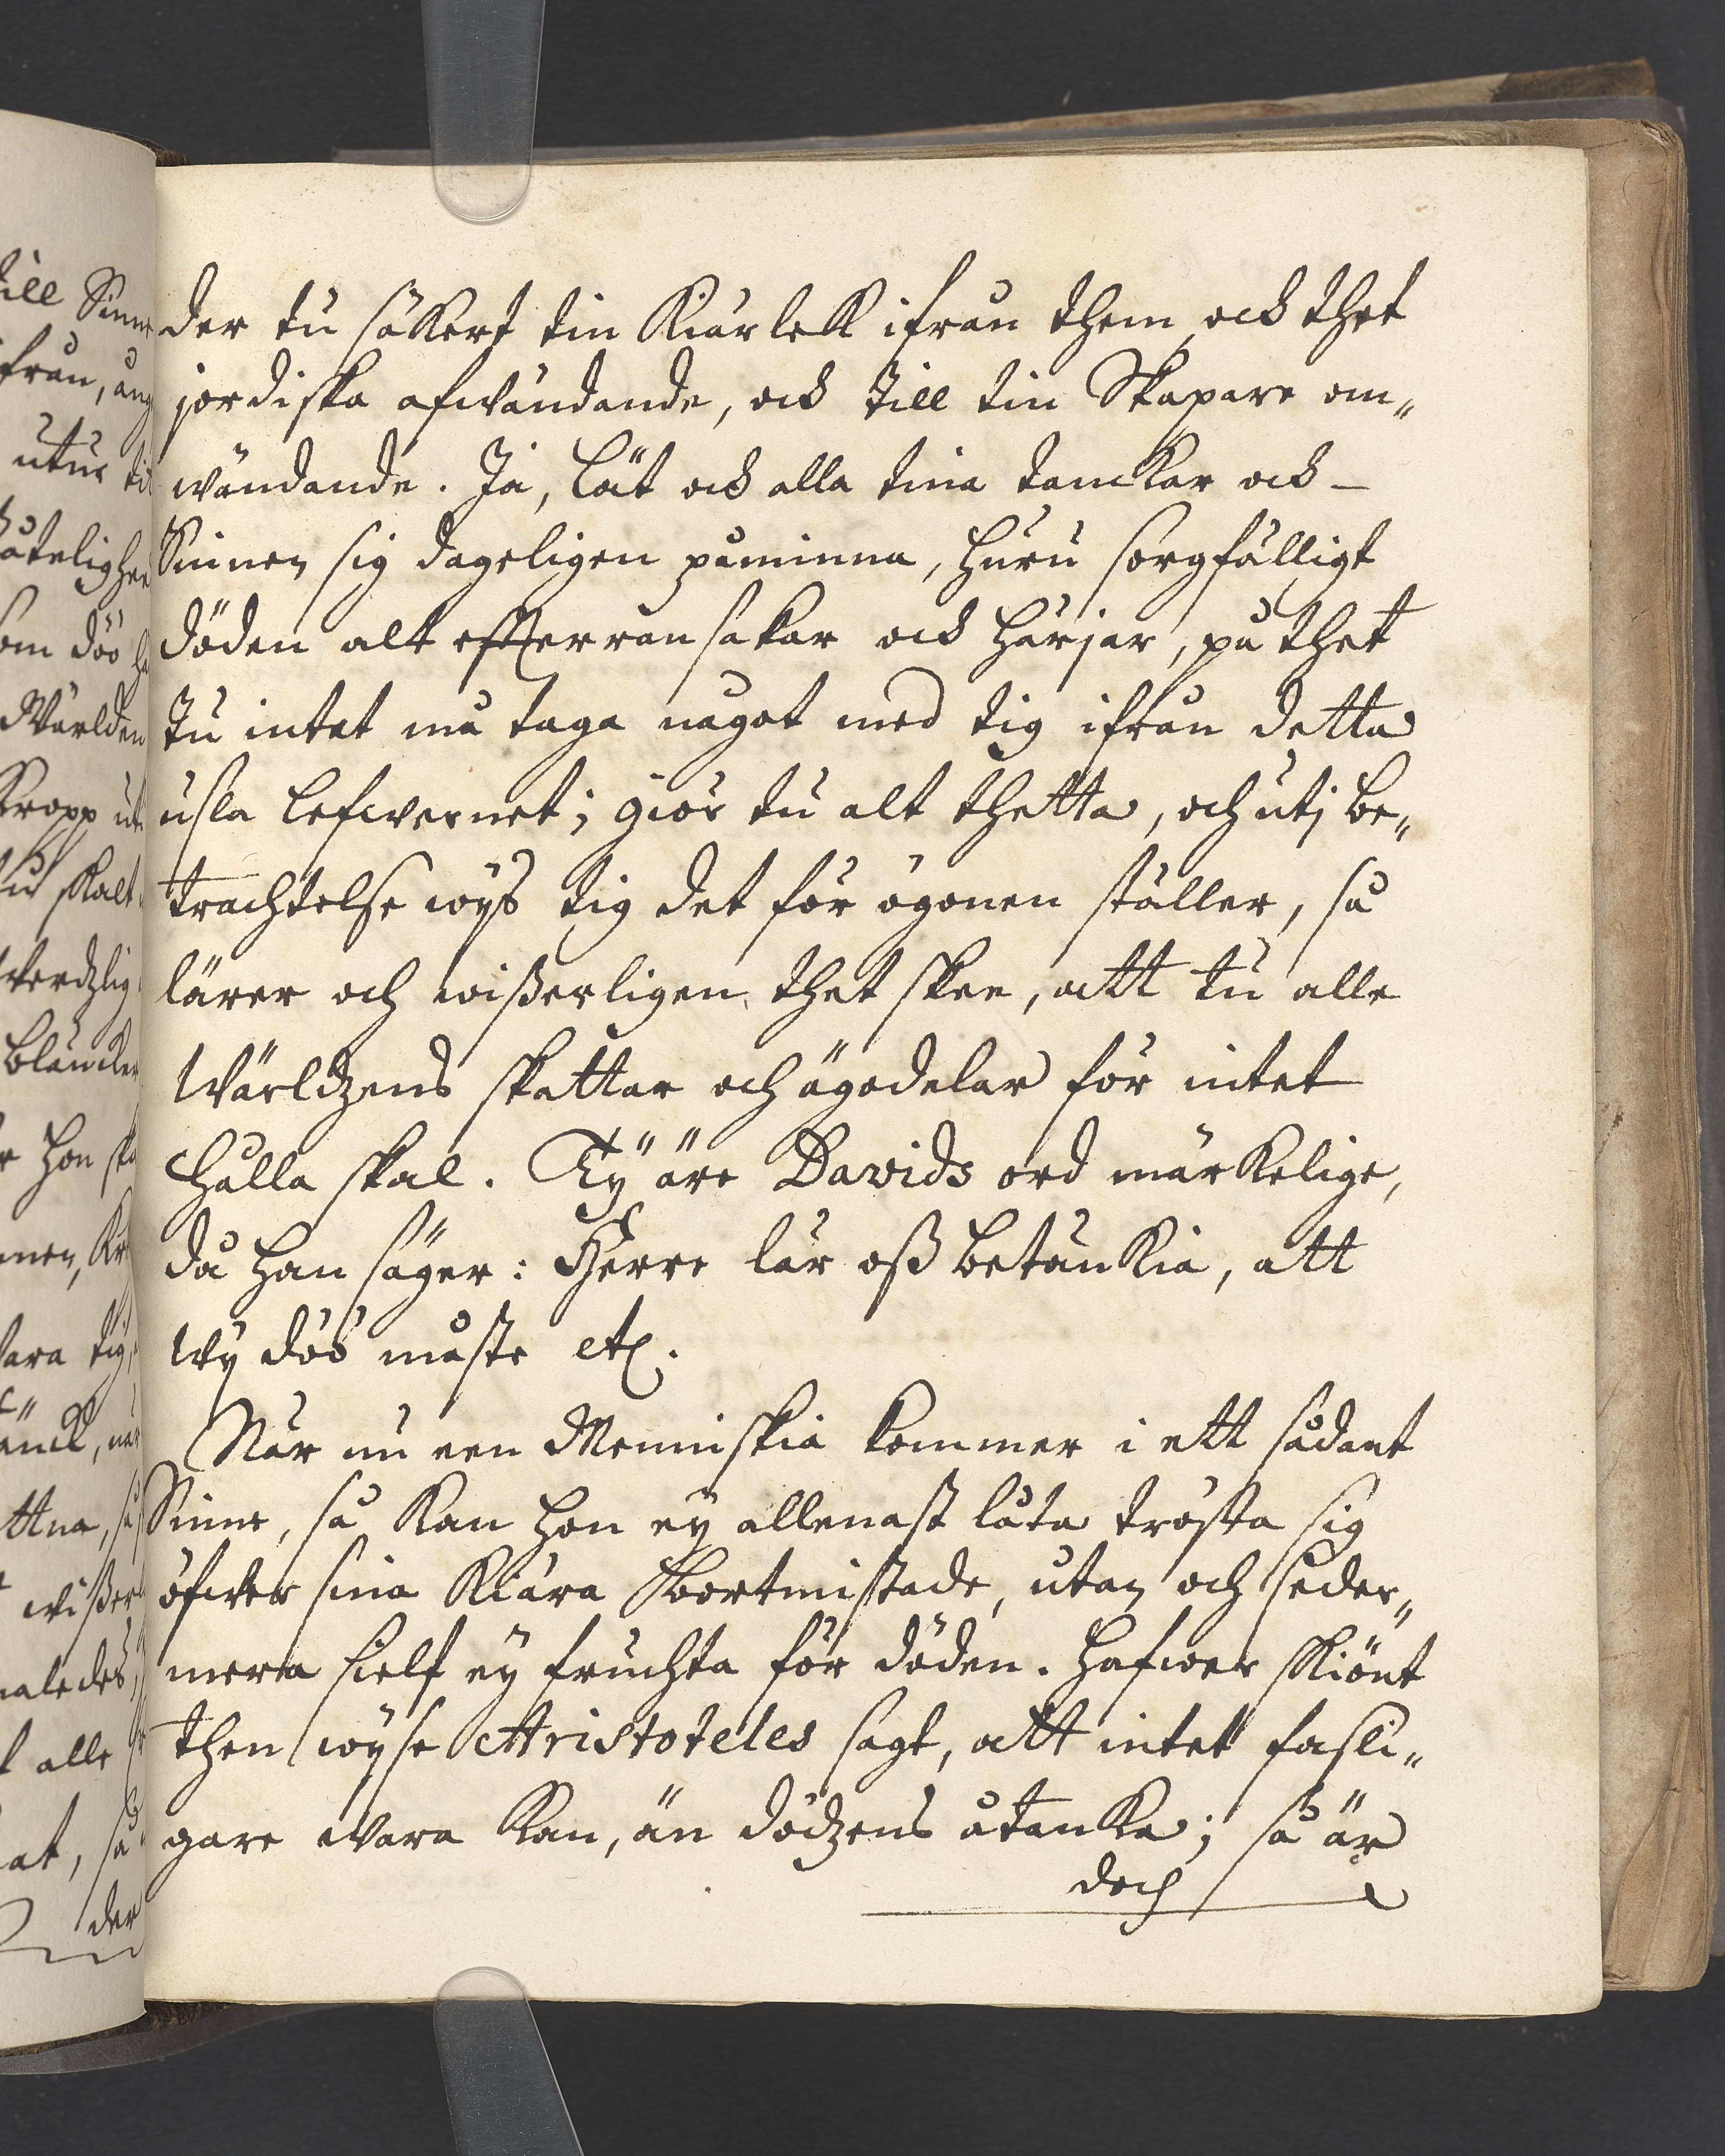 der tu säkert tin Kiärlek ifrån them, ock thet
jordiska afwändande, ock till tin Skapare om„
wändande. Ja, låt ock alla tina tanckar ock
Sinnen sig dageligen påminna, huru sorgfälligt
döden alt efterransakar ock härjar, på thet
tu intet må taga något med tig ifrån detta
usla lefwernet; giör tu alt thetta, och utj be„
trachtelse wys tig det för ögonen ställer, så
lärer och wißerligen thet skee, att tu alle
Wärldzens skattar och ägodelar för intet
hålla skal. Ty äre Davids ord märkelige,
då han säger: Herre lär oß betänkia, att
wy döö måste etc.
När nu een Menniskia kommer i ett sådant
Sinne, så kan hon ey allenast låta trösta sig
öfwer sina Kiära bortmistade, utan och seder„
mera sielf ey fruchta för döden. Hafwer skiönt
then wyse Aristoteles sagt, att intet fasli„
gare wara kan, än dödzens åtanka; så är
doch
till Sinne
ifrån,
utur
som döö
Wärlden
Kropp
tu skalt
hon
wara tig
alle
så
der